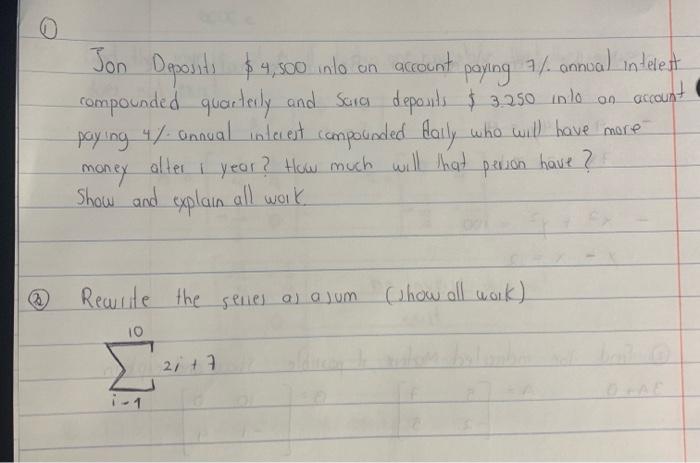 ①
Jon Deposits $4,500 into an account paying 7% annual interest
compounded quarterly and Sara deposits $3.250 into an account
paying 4% annual interest compounded daily who will have more
money after 1 year? How much will that person have?
Show and explain all work.
② Rewrite the series as a sum (show all work)
10
∑ 2i + 7
i-1